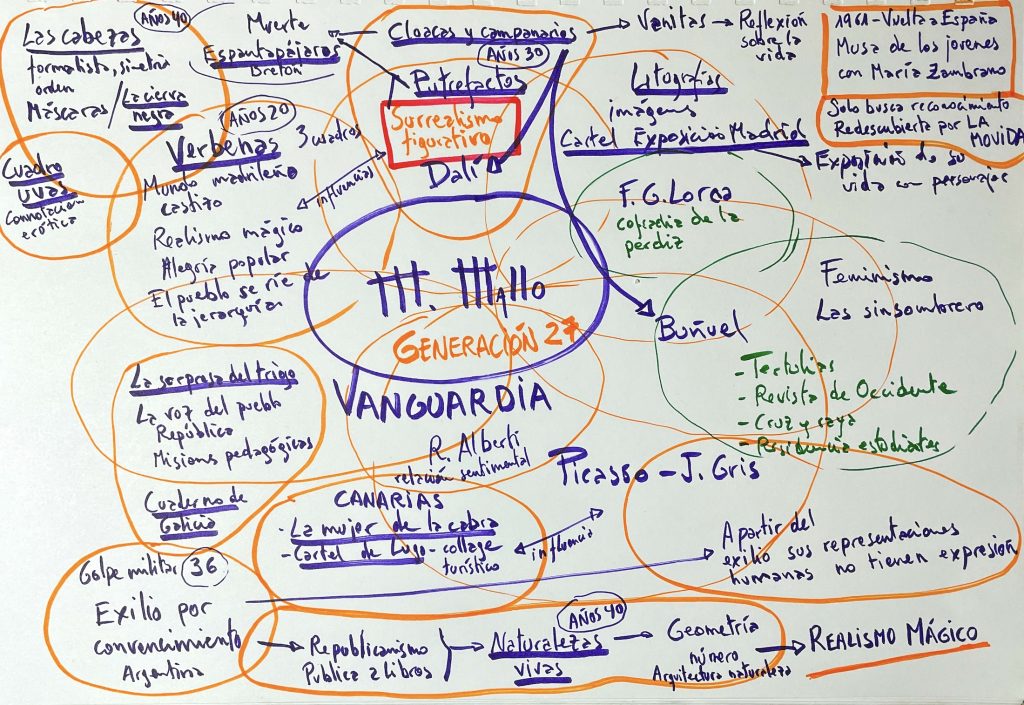 AÑOS 40
Las cabezas
formalista, simetría
orden
Máscaras / La cierva
negra
Muerte
Espantapájaros
Bretón
Cloacas y campanarios
AÑOS 30
Putrefactos
Surrealismo
figurativo
Dalí
Vanitas → Reflexión
sobre la
vida
1961 - Vuelta a España
Musa de los jovenes
con María Zambrano
Solo busca reconocimiento
Redescubierta por LA
MOVIDA
Litografías
imágens
Cartel Exposición Madrid
Exposición de su
vida con personajes
AÑOS 20
Verbenas
3 cuadros
Mundo madrileño
castizo
influencias
Realismo mágico
Alegría popular
El pueblo se ríe de
la jerarquías
Cuadro
uvas
Connotación
erótica
F. G. Lorca
cofradía de la
perdiz
M. Mallo
GENERACIÓN 27
VANGUARDIA
Buñuel
Feminismo
Las sinsombrero
- Tertulias
- Revista de Occidente
- Cruz y raya
- Residencia estudiantes
La sorpresa del trigo
La voz del pueblo
República
Misiones pedagógicas
Cuaderno de
Galicia
R. Alberti
relación sentimental
Picasso - J. Gris
CANARIAS
- La mujer de la cabra
- Cartel de Lugo - collage
turístico
influencia
A partir del
exilio sus representaciones
humanas no tienen expresión
Golpe militar 36
Exilio por
convencimiento
Argentina
Republicanismo
Publica 2 libros
AÑOS 40
Naturalezas
vivas
Geometría
número
Arquitectura naturaleza
REALISMO MÁGICO